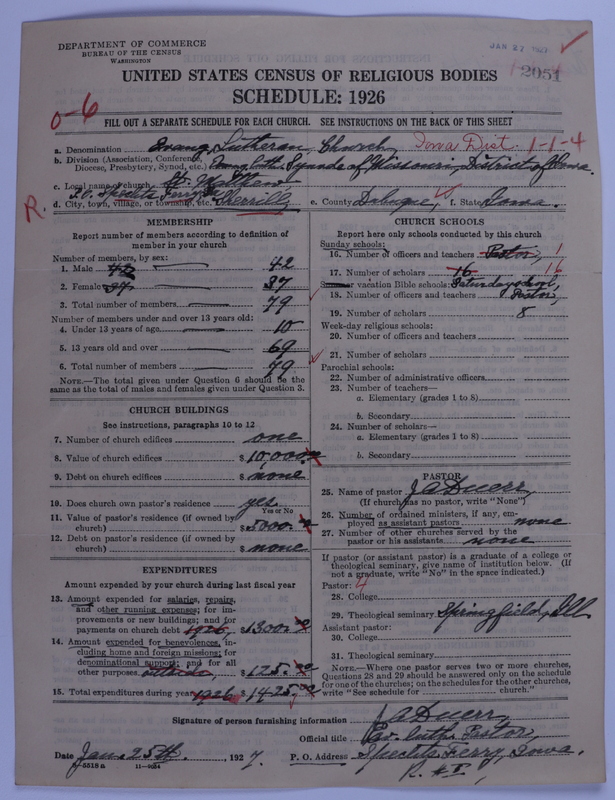 DEPARTMENT OF COMMERCE
BUREAU OF THE CENSUS
WASHINGTON
JAN 27 1927
2051
UNITED STATES CENSUS OF RELIGIOUS BODIES
SCHEDULE: 1926
0-6
FILL OUT A SEPARATE SCHEDULE FOR EACH CHURCH. SEE INSTRUCTIONS ON THE BACK OF THIS SHEET
a. Denomination Evang. Lutheran Church Iowa Dist. 1-1-4
b. Division (Association, Conference, Diocese, Presbytery, Synod, etc.) Evang. Luth. Synode of Missouri, District of Iowa.
c. Local name of church St. Matthew
P.O. Spechts Ferry
R.
d. City, town, village, or township, etc. Sherrill e. County Dubuque f. State Iowa.
MEMBERSHIP
Report number of members according to definition of
member in your church
Number of members, by sex:
1. Male 42 42
2. Female 37 37
3. Total number of members 79
Number of members under and over 13 years old:
4. Under 13 years of age 10
5. 13 years old and over 69
6. Total number of members 79
NOTE.—The total given under Question 6 should be the
same as the total of males and females given under Question 3.
CHURCH BUILDINGS
See instructions, paragraphs 10 to 12
7. Number of church edifices one
8. Value of church edifices $10,000
9. Debt on church edifices $none
10. Does church own pastor's residence? yes
Yes or No
11. Value of pastor's residence (if owned by
church) $5000
12. Debt on pastor's residence (if owned by
church) $none
EXPENDITURES
Amount expended by your church during last fiscal year
13. Amount expended for salaries, repairs,
and other running expenses; for im-
provements or new buildings; and for
payments on church debt 1926, $1300.00
14. Amount expended for benevolences, in-
cluding home and foreign missions; for
denominational support; and for all
other purposes outside, $125.00
15. Total expenditures during year 1926 $1425.00
CHURCH SCHOOLS
Report here only schools conducted by this church
Sunday schools:
16. Number of officers and teachers Pastor, 1
17. Number of scholars 16 16
Summer vacation Bible schools: Saturday school,
18. Number of officers and teachers Pastor,
19. Number of scholars 8
Week-day religious schools:
20. Number of officers and teachers
21. Number of scholars
Parochial schools:
22. Number of administrative officers
23. Number of teachers—
a. Elementary (grades 1 to 8)
b. Secondary
24. Number of scholars—
a. Elementary (grades 1 to 8)
b. Secondary
PASTOR
25. Name of pastor J A Duerr,
(If church has no pastor, write "None")
26. Number of ordained ministers, if any, em-
ployed as assistant pastors none
27. Number of other churches served by the
pastor or his assistants none
If pastor (or assistant pastor) is a graduate of a college or
theological seminary, give name of institution below. (If
not a graduate, write "No" in the space indicated.)
Pastor: 4
28. College
29. Theological seminary Springfield, Ill.
Assistant pastor:
30. College
31. Theological seminary
NOTE.—Where one pastor serves two or more churches,
Questions 28 and 29 should be answered only on the schedule
for one of the churches; on the schedules for the other churches,
write "See schedule for church."
Signature of person furnishing information J A Duerr,
Official title Ev. Luth. Pastor,
Date Jan. 25th., 1927. P. O. Address Spechts Ferry, Iowa.
8-5518 a 11-2024 R. #1,